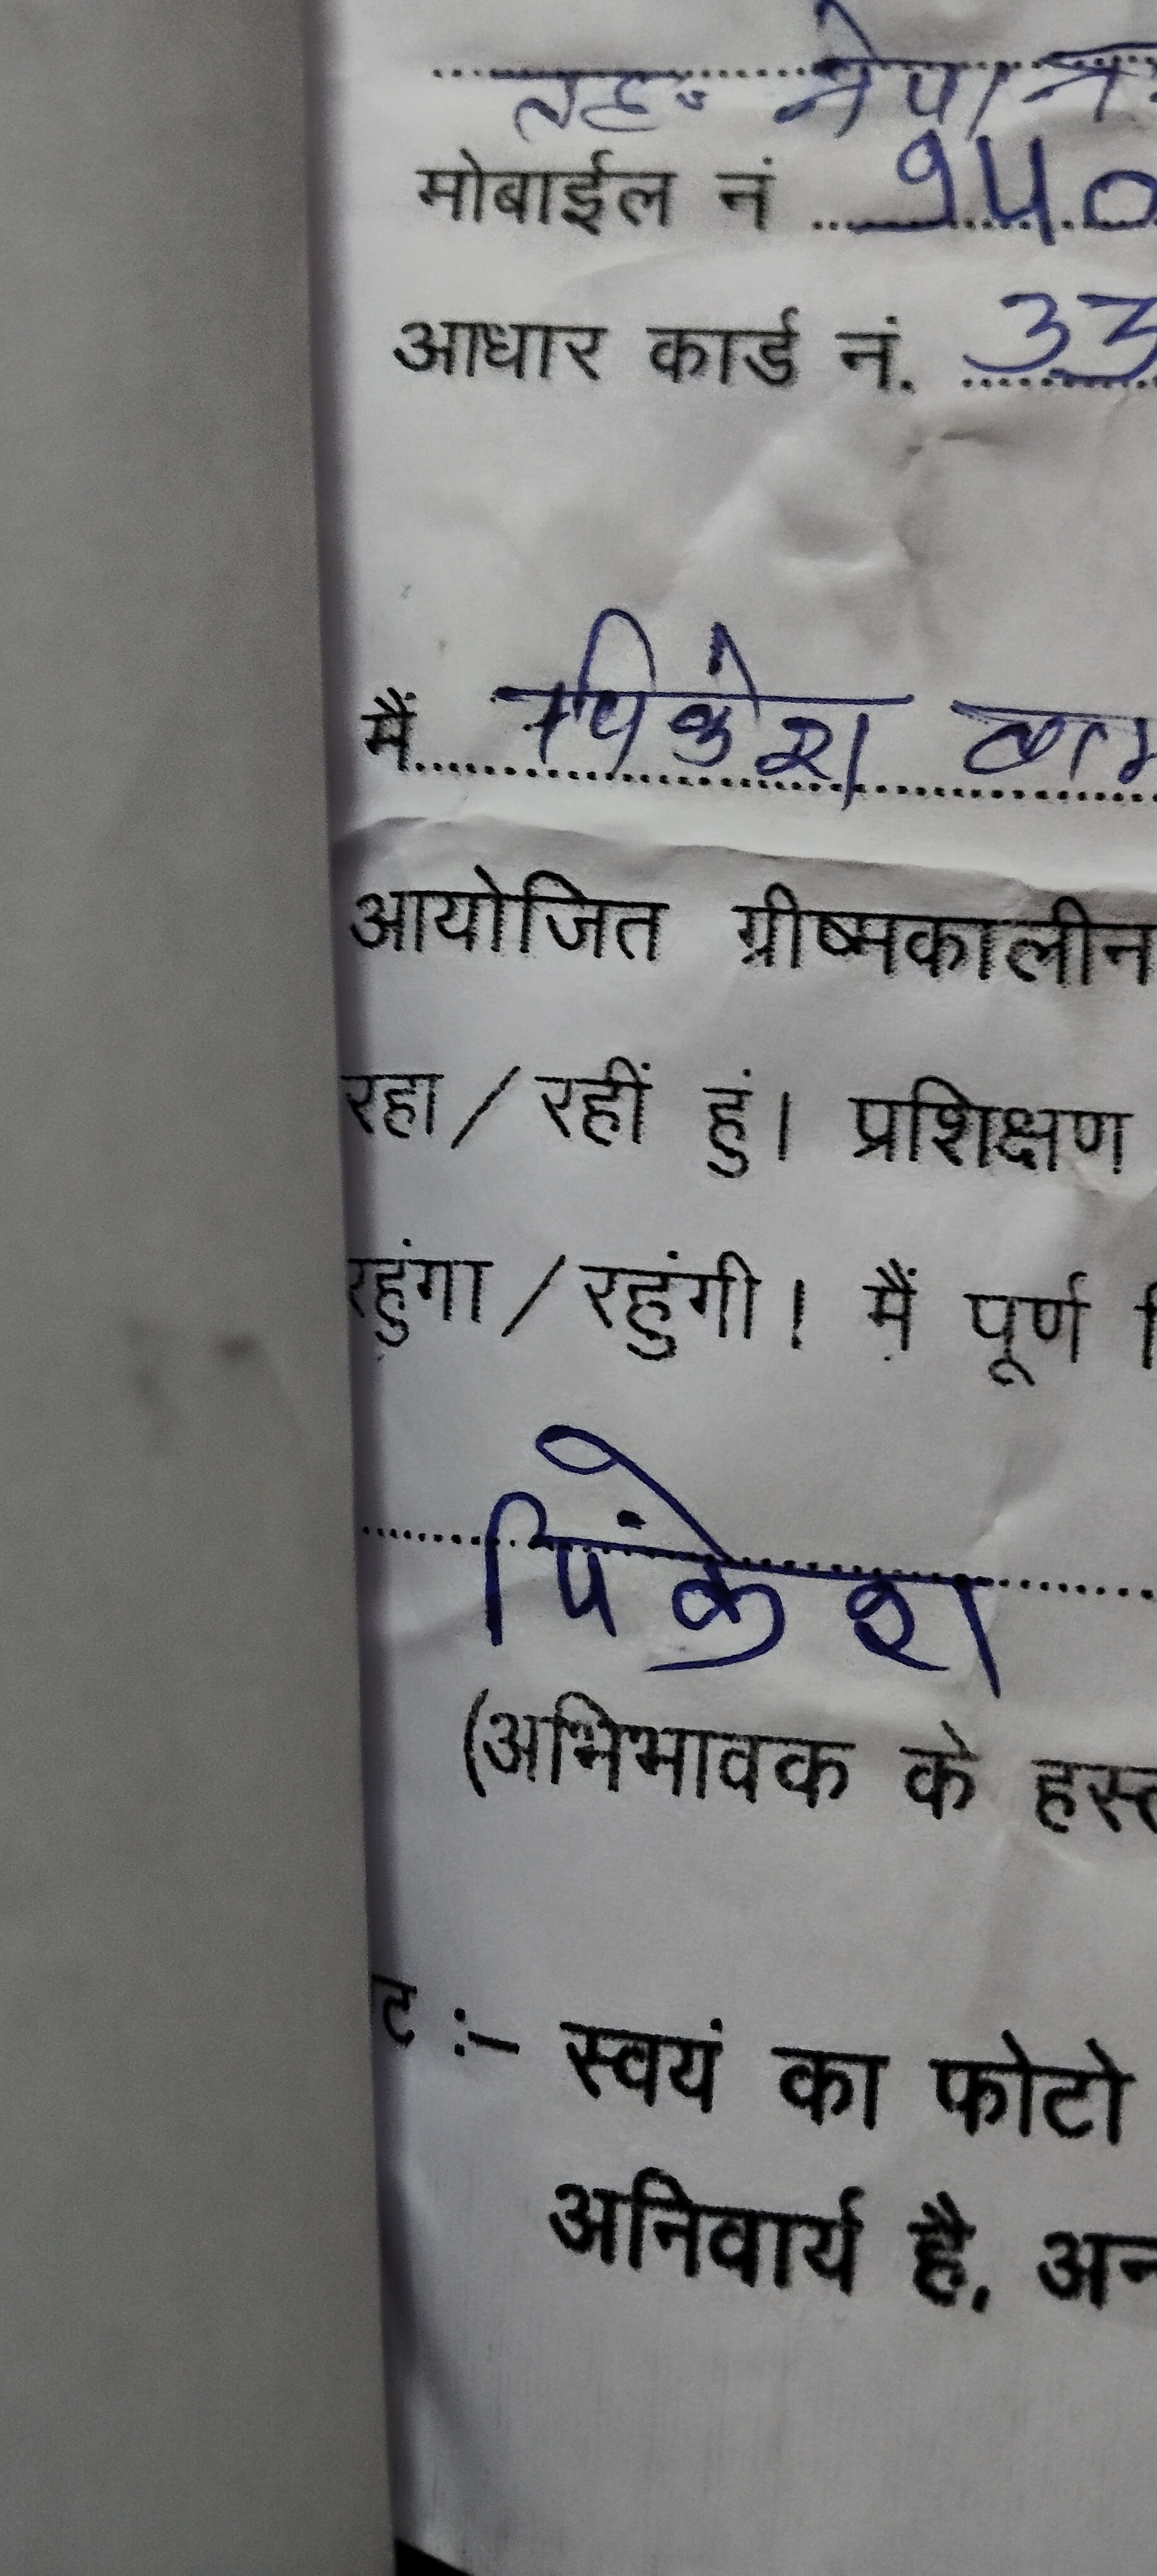 तह. नेपा
मोबाईल नं 940
आधार कार्ड नं. 33
मैं पिकेश
आयोजित ग्रीष्मकालीन
रहा / रहीं हुं। प्रशिक्षण
रहुंगा / रहुंगी। मैं पूर्ण
पिंकेश
(अभिभावक के हस्त
ट :– स्वयं का फोटो
अनिवार्य है, अन